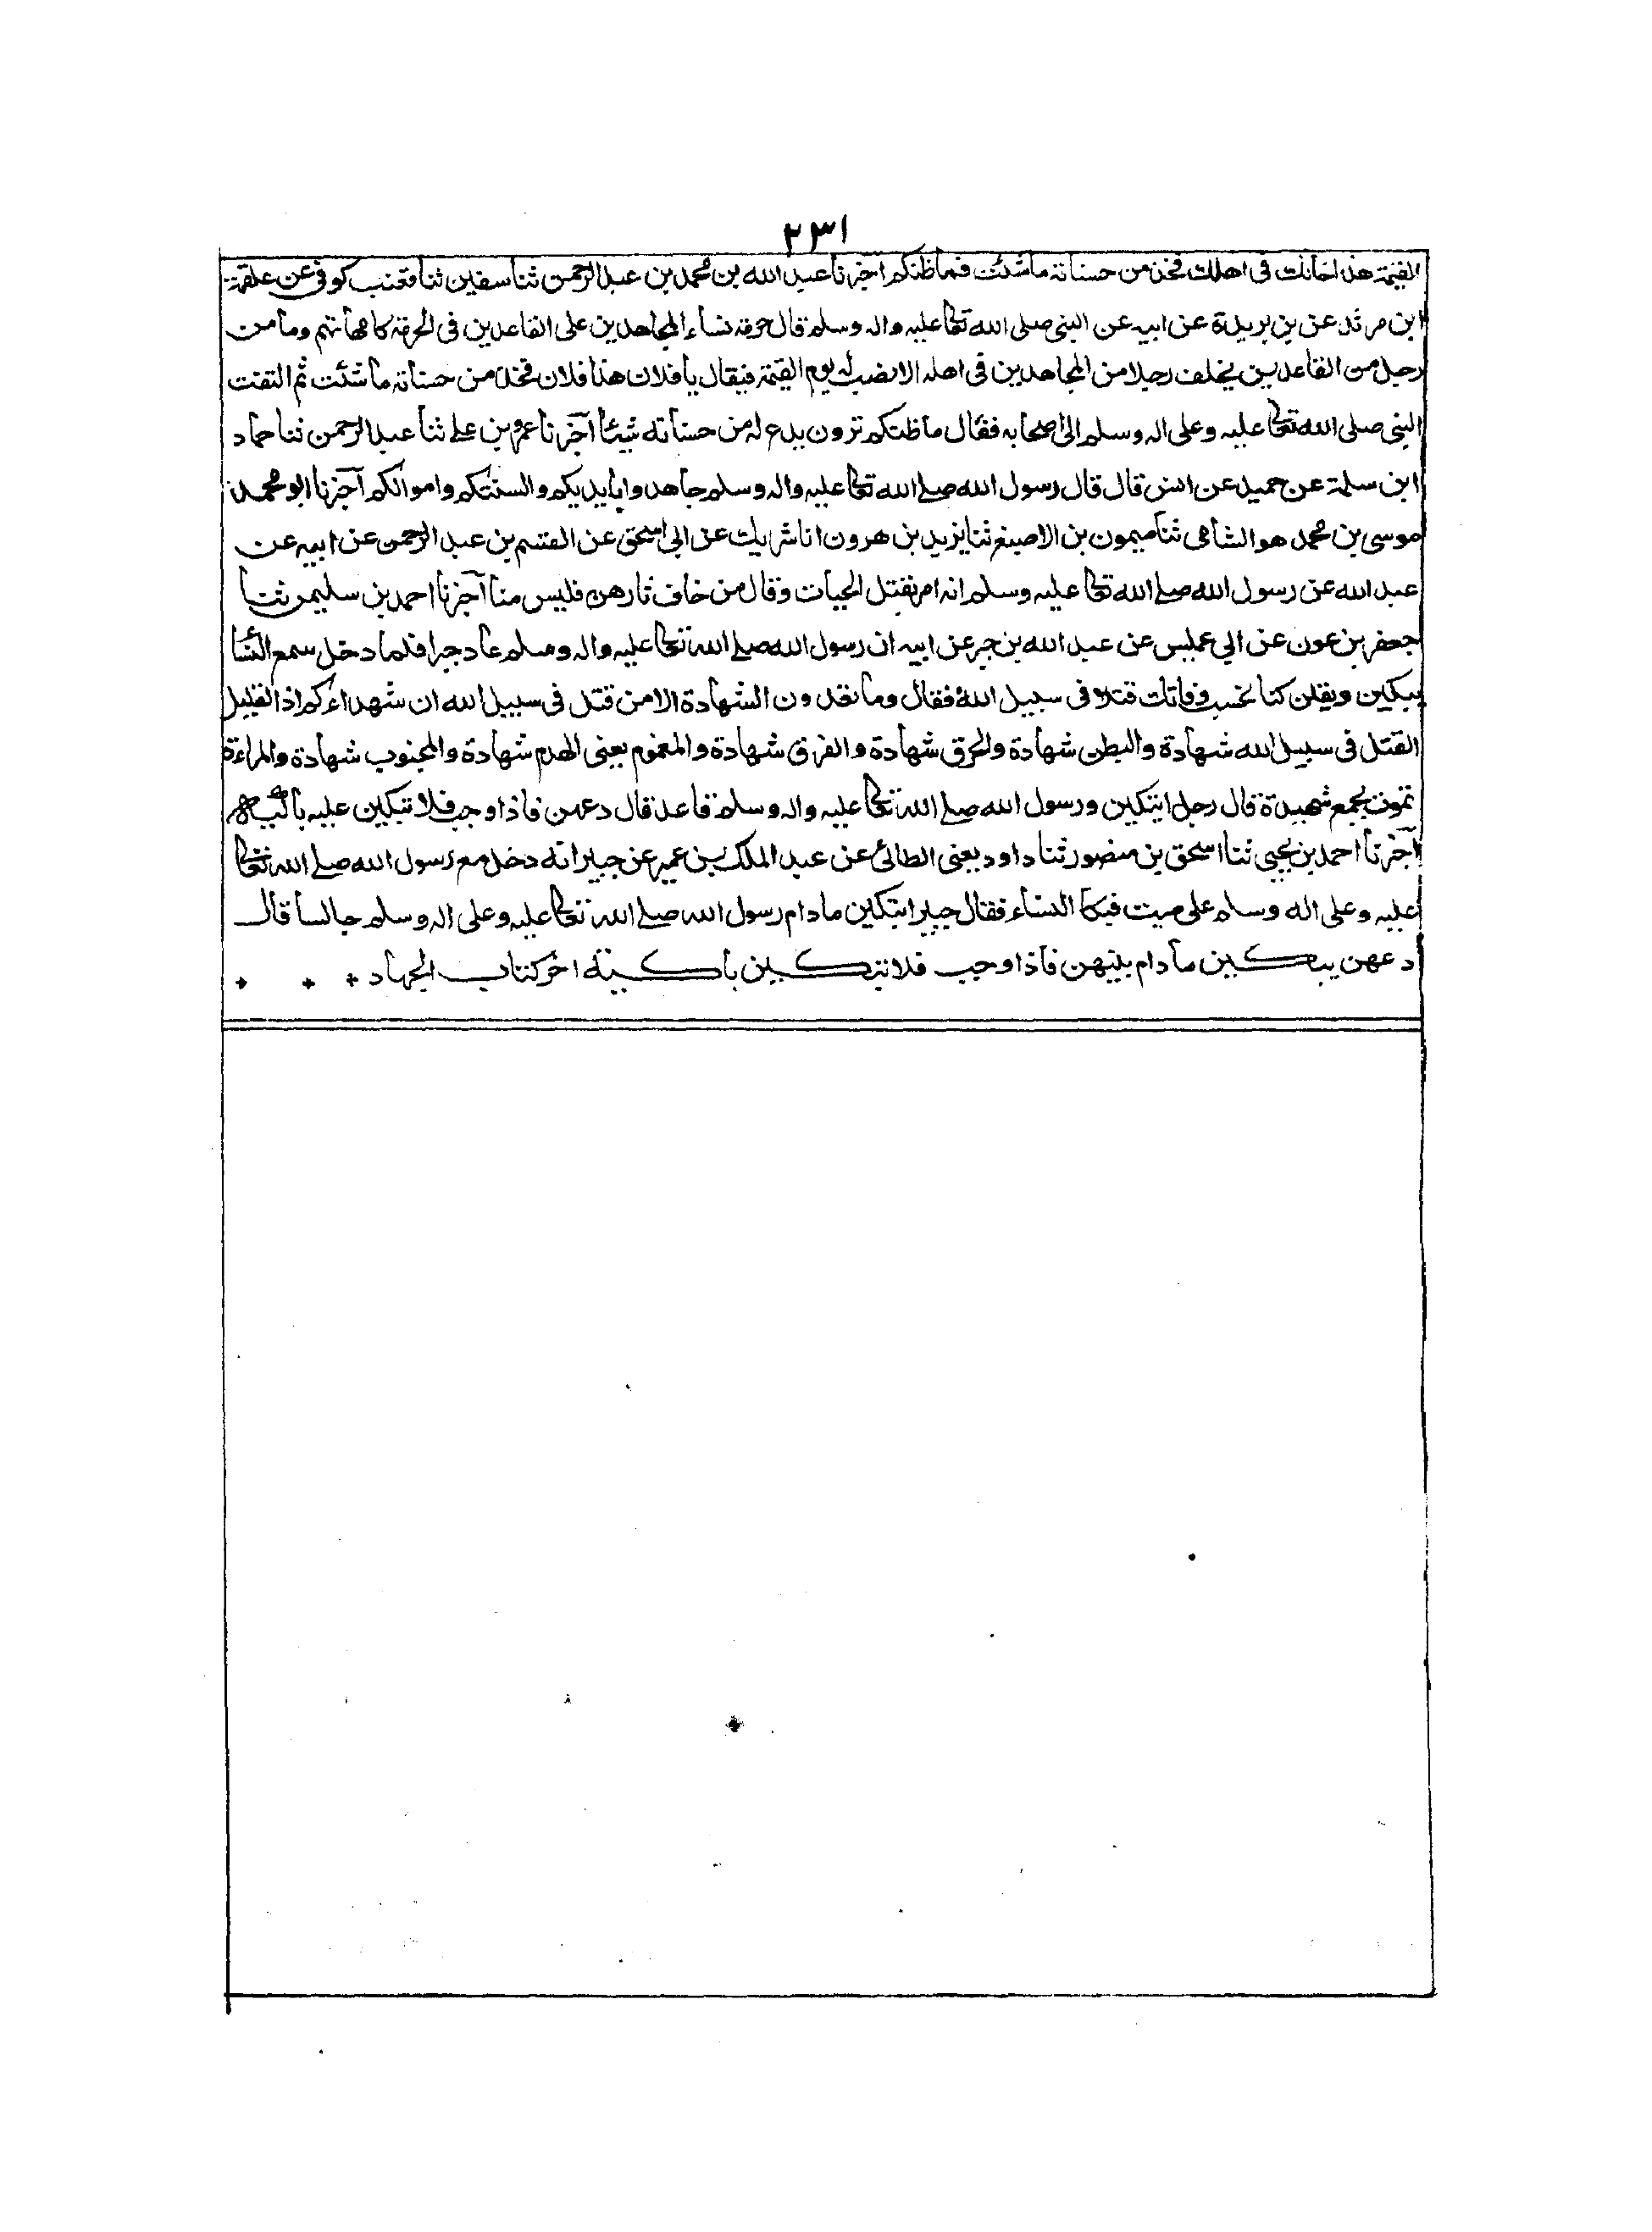 ٢٣١
القيمة هذا خانك فى اهلك فخذ من حسناته ما شئت فما ظنكم اخبرنا عبد الله بن محمد بن عبد الرحمن ثنا سفين ثنا قعنب كوفى عن علقمة
ابن مرثد عن بن بريدة عن ابيه عن النبى صلى الله تعا عليه واله وسلم قال حرمة نساء المجاهدين على القاعدين فى الحرمة كامهاتهم وما من
رجل من القاعدين يخلف رجلا من المجاهدين فى اهله الا نصب له يوم القيمة فيقال يا فلان هذا فلان فخذ من حسناته ما شئت ثم التفت
النبى صلى الله تعا عليه وعلى اله وسلم الى اصحابه فقال ما ظنكم ترون يدع له من حسناته شيئا آخبرنا عمرو بن على ثنا عبد الرحمن ثنا حماد
ابن سلمة عن حميد عن انس قال قال رسول الله صلى الله تعا عليه واله وسلم جاهدوا بايديكم والسنتكم واموالكم آخبرنا ابو محمد
موسى بن محمد هو الشامى ثنا ميمون بن الاصبغ ثنا يزيد بن هرون انا شريك عن ابى اسحق عن القسم بن عبد الرحمن عن ابيه عن
عبد الله عن رسول الله صلى الله تعا عليه وسلم انه امر بقتل الحيات وقال من خاف ثارهن فليس منا آخبرنا احمد بن سليمن ثنا
جعفر بن عون عن ابي عميس عن عبد الله بن جبر عن ابيه ان رسول الله صلى الله تعا عليه واله وسلم عاد جبرا فلما دخل سمع النسا
يبكين ويقلن كنا نحسب وفاتك قتلا فى سبيل الله فقال وما تعدون الشهادة الا من قتل فى سبيل الله ان شهداءكم اذا لقليل
القتل فى سبيل الله شهادة والبطن شهادة والحرق شهادة والغرق شهادة والمغموم يعنى الهدم شهادة والمجنوب شهادة والمراءة
تموت بجمع شهيدة قال رجل اتبكين ورسول الله صلى الله تعا عليه واله وسلم قاعد قال دعهن فاذا وجب فلا تبكين عليه باكية
آخبرنا احمد بن يحيى ثنا اسحق بن منصور ثنا داود يعنى الطائى عن عبد الملك بن عمير عن جبير انه دخل مع رسول الله صلى الله تعا
عليه وعلى اله وسلم على ميت فبكا النساء فقال جبير اتبكين ما دام رسول الله صلى الله تعا عليه وعلى اله وسلم جالسا قال
دعهن يبكين ما دام بينهن فاذا وجب فلا تبكين باكية اخر كتاب الجهاد